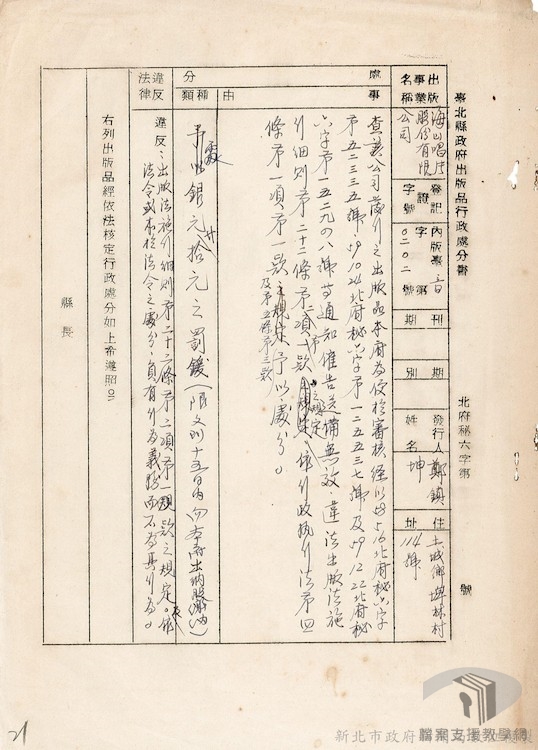 臺北縣政府出版品行政處分書
北府秘六字第　　號
出版事業名稱
海山唱片股份有限公司
登記證字號
內版臺音字第〇二〇二號
刊期
期別
發行人姓名
鄭鎮坤
住址
土城鄉埤林村114號
處分
事由
查該公司發行之出版品本府為便於審核經以59.5.16北府秘六字
第五二三三五號、59.10.26北府秘六字第一二五五三七號及59.12.22北府秘
六字第一五二九〇八號等通知催告送備無效，違法出版法施
行細則第二十二條第二項第一款之規定、依行政執行法第四
條第一項第一款及第五條第三款之規定予以處分。
種類
予以處銀元廿拾元之罰鍰（限文到十五日內向本府出納股繳納）
違反法律
違反：出版法施行細則第二十二條第二項第一款之規定。依
法令或本於法令之處分，負有行為義務而不為其行為。
右列出版品經依法核定行政處分如上希遵照
縣長
21
檔案支援教學網
新北市政府